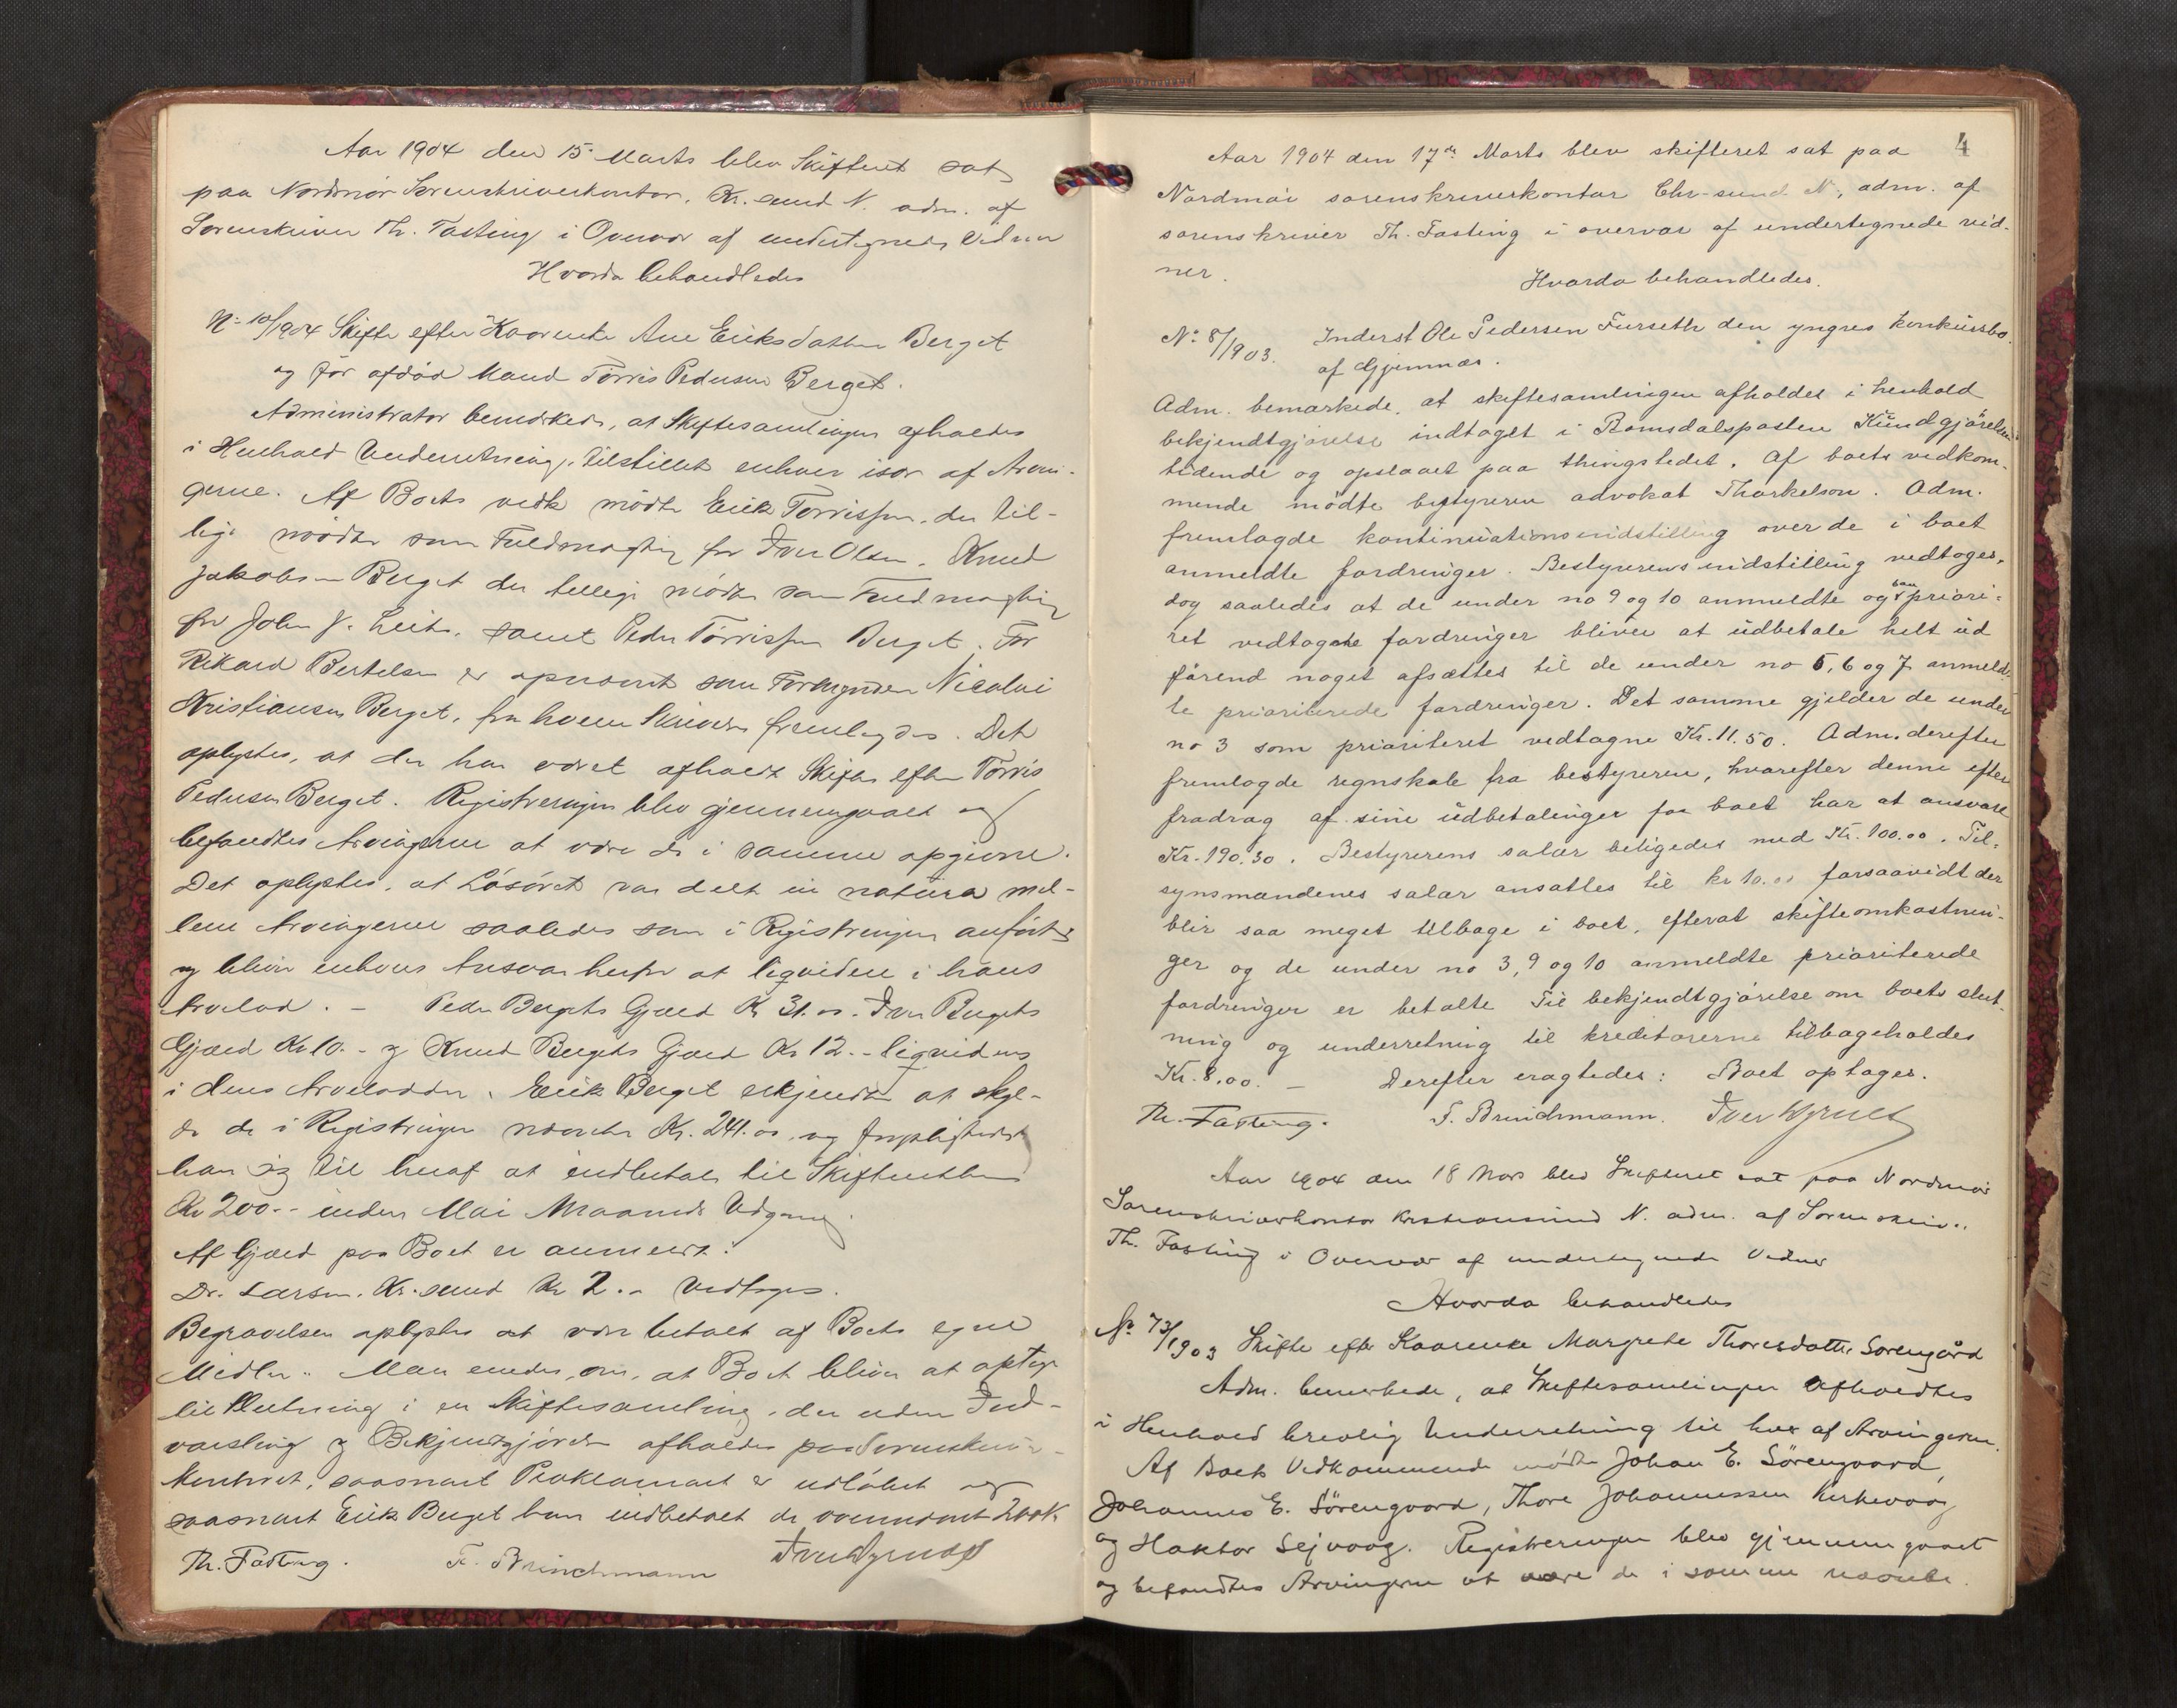 Aar 1904 den 15. Marts blev Skifteret sat
paa Nordmør Sorenskriverkontor, Kr.sund N. adm. af
Sorenskriver Th. Fasting i Overvær af undertegnede Vidner
Hvorda behandledes
No 10/1904 Skifte efter Kaarenke Ane Eriksdatter Berget
og før afdød Mand Tørris Pedersen Berget.
Administrator bemærkede, at Skiftesamlingen afholdes
i Henhold Underretning, tilstillet enhver især af Arvin-
gerne. Af Boets vedk mødte Erik Tørrissen, der til-
lige mødte som Fuldmægtig for Iver Olsen. Knud
Jakobsen Berget der tillige mødte som Fuldmægtig
for John J. Leite, samt Peder Tørrissen Berget. For
Rikard Bertelsen er opnævnt som Formynder Nicolai
Kristiansen Berget, fra hvem Skrivelse fremlagdes. Det
oplystes, at der har været afholdt Skifte efter Tørris
Pedersen Berget. Registreringen blev gjennemgaaet og
befandtes Arvingerne at være de i samme opgivne.
Det oplystes, at Løsøret var delt in natura mel-
lem Arvingerne saaledes som i Registreringen anført
og bliver enhvers Ansvar herfor at liqvidere i hans
Arvelod. - Peder Bergets Gjæld Kr 31.00. Iver Bergets
Gjæld Kr 10.- og Knud Bergets Gjæld Kr 12.- liqvideres
i deres Arvelodder. Erik Berget erkjendte at skyl-
de de i Registreringen nævnte Kr. 241.00, og forpligtede
han sig til heraf at indbetale til Skifteretten
Kr 200.- inden Mai Maaneds Udgang.
Af Gjæld paa Boet er anmeldt:
Dr. Larsen, Kr.sund Kr 2.- Vedtoges.
Begravelsen oplystes at være betalt af Boets egne
Midler. Man enedes om, at Boet bliver at optage
til Slutning i en Skiftesamling, der uden Ind-
varsling og Bekjendtgjørelse afholdes paa Sorenskriver-
kontoret, saasnart Proklamaet er udløbet og
saasnart Erik Berget har indbetalt de ovennævnte 200 Kr.
Th. Fasting. F. Brinchmann
4
Aar 1904 den 17de Marts blev skifteret sat paa
Nordmør sorenskriverkontor Chr-sund N., adm. af
sorenskriver Th. Fasting i overvær af undertegnede vid-
ner.
Hvorda behandledes.
No 8/1903. Inderst Ole Pedersen Furseth den yngres konkursbo.
af Gjemnæs.
Adm. bemærkede, at skiftesamlingen afholdes i henhold
bekjendtgjørelse indtaget i Romsdalsposten Kundgjørelses
tidende og opslaaet paa thingstedet. Af boets vedkom-
mende mødte bestyreren advokat Thorkelson. Adm.
fremlagde kontinuationsindstilling over de i boet
anmeldte fordringer. Bestyrerens indstilling vedtoges,
dog saaledes at de under no 9 og 10 anmeldte og som priori-
ret vedtagne fordringer bliver at udbetale helt ud
førend noget afsættes til de under no 5, 6 og 7 anmeld-
te prioriterede fordringer. Det samme gjelder de under
no 3 som prioriteret vedtagne Kr. 11.50. Adm. derefter
fremlagde regnskab fra bestyreren, hvorefter denne efter
fradrag af sine udbetalinger for boet har at ansvare
Kr. 190.30. Bestyrerens salær billigedes med Kr. 100.00. Til-
synsmandenes salær ansattes til kr 10.00 forsaavidt der
blir saa meget tilbage i boet, efterat skifteomkostnin-
ger og de under no 3, 9 og 10 anmeldte prioriterede
fordringer er betalte Til bekjendtgjørelse om boets slut-
ning og underretning til kreditorerne tilbageholdes
Kr. 8.00. - Derefter eragtedes: Boet optages.
Th. Fasting. F. Brinchmann.
Aar 1904 den 18 Mars blev Skifteret sat paa Nordmør
Sorenskriverkontor Kristiansund N. adm. af Sorenskriv..
Th. Fasting i Overvær af undertegnede Vidner
Hvorda behandledes
No 73/1903 Skifte efter Kaarenke Margrete Thoresdatter Sørengård
Adm. bemerkede, at Skiftesamlingen afholdtes
i Henhold brevlig Underretning til hver af Arvingerne.
Af Boets Vedkommende mødte Johan E. Sørengaard,
Johannes E. Sørengaard, Thore Johannessen Kirkevaag
og Haktor Sejvaag. Registreringen blev gjennemgaaet
og befandtes Arvingerne at være de i samme nævnte.